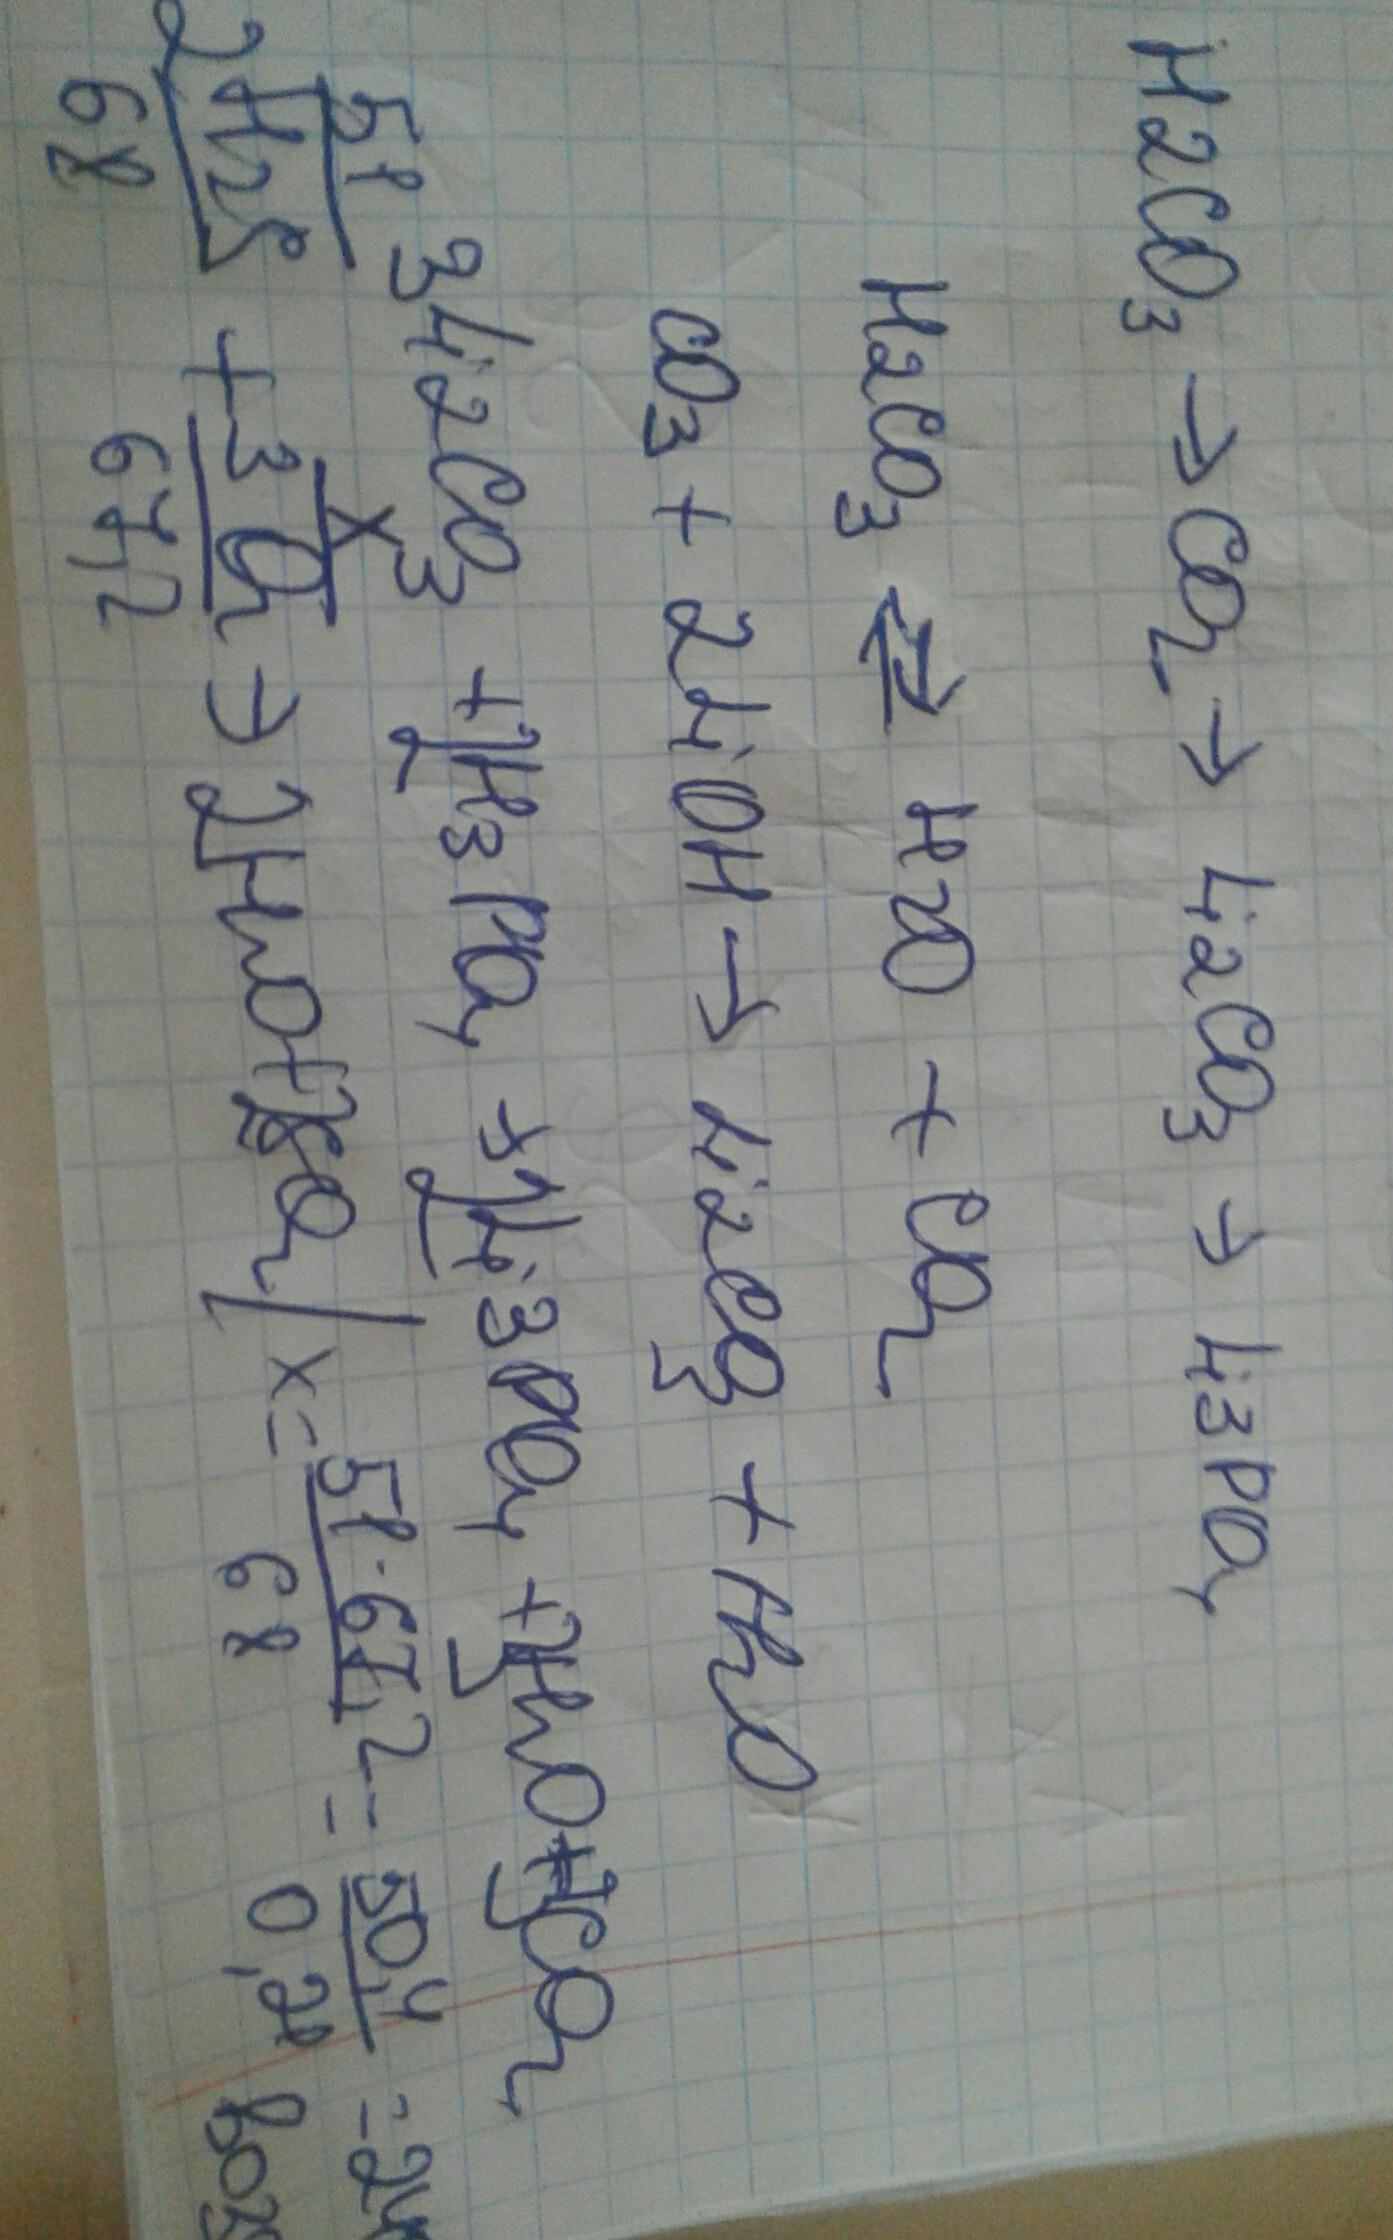 H2CO3 → CO2 → Li2CO3 → Li3PO4
H2CO3 ⇄ H2O + CO2
CO3 + 2LiOH → Li2CO3 + H2O
3Li2CO3 + 2H3PO4 → 2Li3PO4 + 3H2O + 3CO2
51 x
2H2S + 3O2 → 2H2O + 2SO2 / x = 51·67,2 / 68 = 50,4
68 67,2
0,21